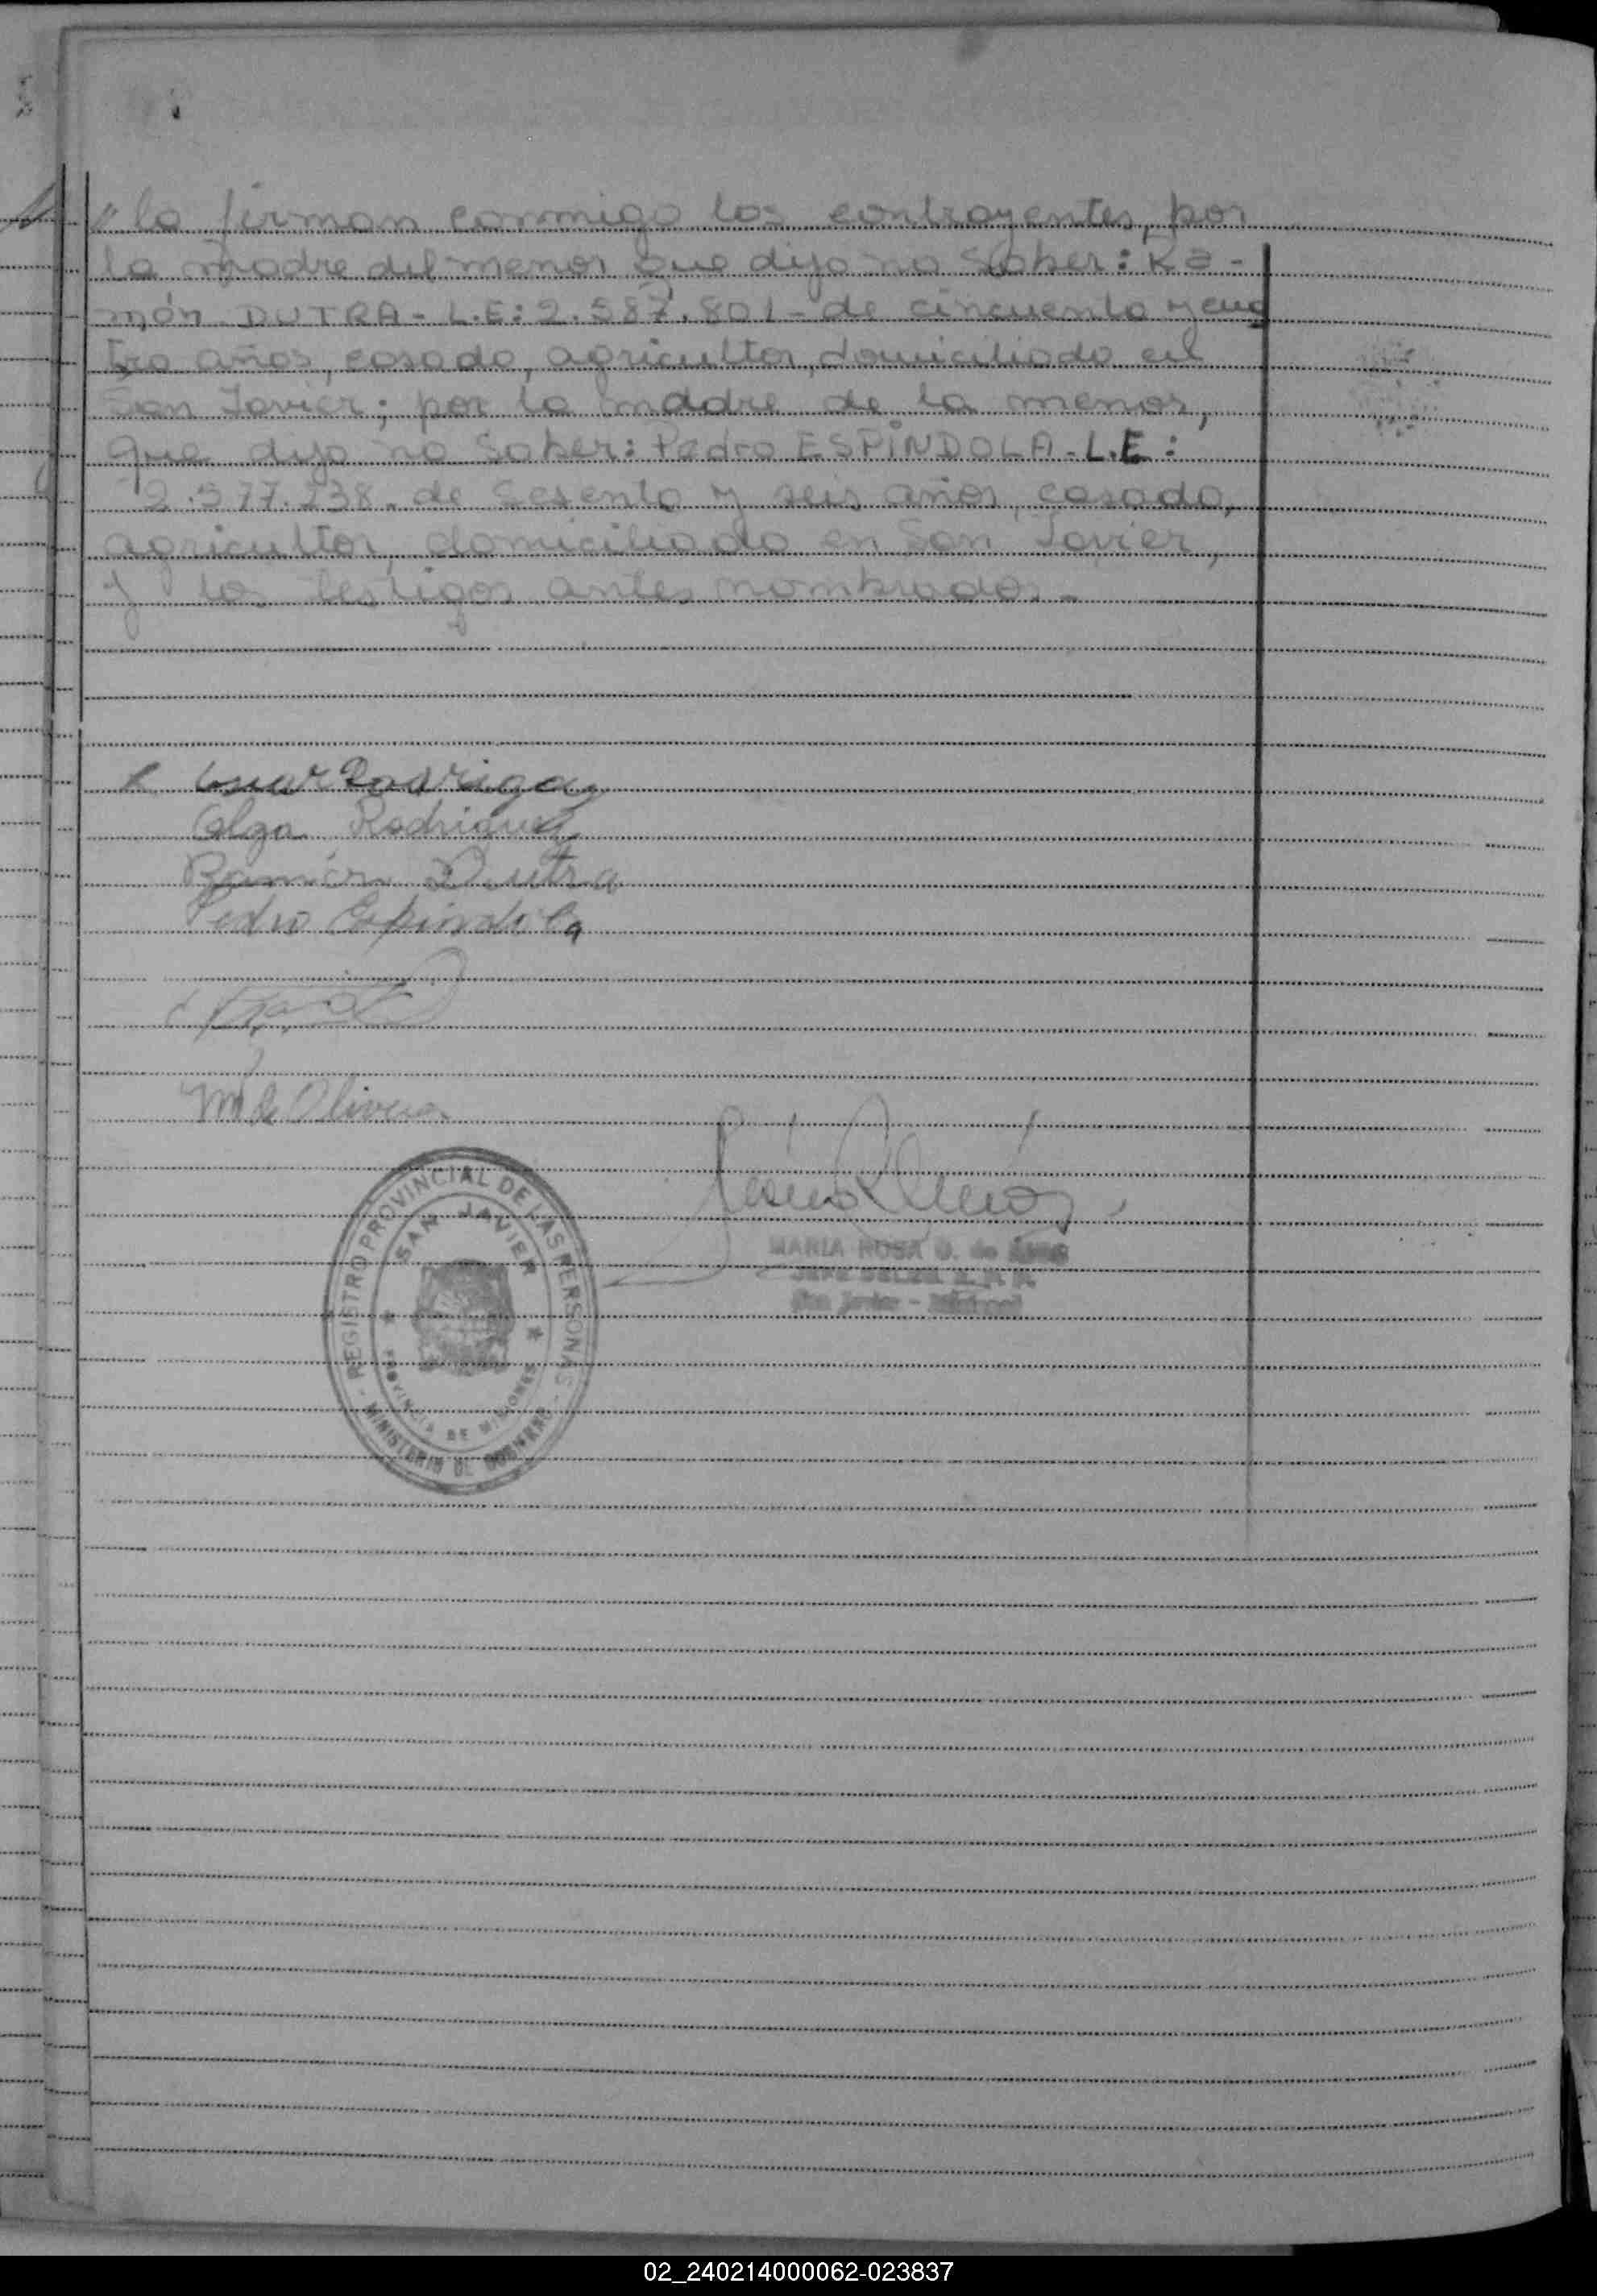 // la firman conmigo los contrayentes, por
la madre del menor que dijo no saber: Ra-
món DUTRA - L.E: 2.587.801 - de cincuenta y cua
tro años, casado, agricultor, domiciliado en
San Javier; por la madre de la menor,
que dijo no saber: Pedro ESPINDOLA - L.E:
2.577.238. de sesenta y seis años, casado,
agricultor, domiciliado en San Javier,
y los testigos antes nombrados.-
Rodriguez
Olga Rodriguez
Ramón Dutra
Pedro Espindola
Olivera
REGISTRO PROVINCIAL DE LAS PERSONAS
SAN JAVIER
PROVINCIA DE MISIONES
MINISTERIO DE GOBIERNO
MARIA ROSA D. de
San Javier - Misiones
02_240214000062-023837